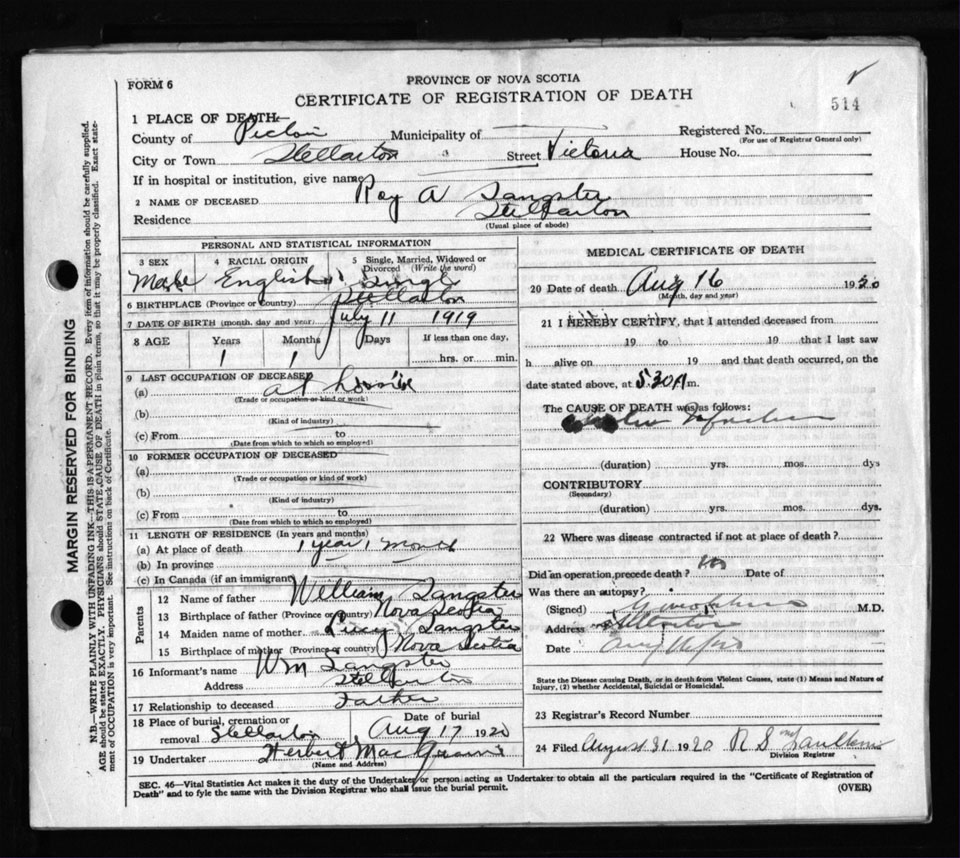 PROVINCE OF NOVA SCOTIA
FORM 6
CERTIFICATE OF REGISTRATION OF DEATH
514
1 PLACE OF DEATH:—
County of Pictou Municipality of Registered No.
(For use of Registrar General only)
City or Town Stellarton Street Victoria House No.
If in hospital or institution, give name
2 NAME OF DECEASED Roy A Sangster
Residence Stellarton
(Usual place of abode)
PERSONAL AND STATISTICAL INFORMATION
3 SEX 4 RACIAL ORIGIN 5 Single, Married, Widowed or Divorced (Write the word)
Male English Single
6 BIRTHPLACE (Province or Country) Stellarton
7 DATE OF BIRTH (month, day and year) July 11 1919
8 AGE Years Months Days If less than one day,
1 1 hrs. or min.
9 LAST OCCUPATION OF DECEASED
(a) at home
(Trade or occupation or kind of work)
(b)
(Kind of industry)
(c) From to
(Date from which to which so employed)
10 FORMER OCCUPATION OF DECEASED
(a)
(Trade or occupation or kind of work)
(b)
(Kind of industry)
(c) From to
(Date from which to which so employed)
11 LENGTH OF RESIDENCE (In years and months)
(a) At place of death 1 year 1 month
(b) In province
(c) In Canada (if an immigrant)
Parents
12 Name of father William Sangster
13 Birthplace of father (Province or Country) Nova Scotia
14 Maiden name of mother Lucy Sangster
15 Birthplace of mother (Province or country) Nova Scotia
16 Informant's name Wm Sangster
Address Stellarton
17 Relationship to deceased Father
18 Place of burial, cremation or removal Stellarton Date of burial Aug 17 1920
19 Undertaker Herbert Mac
(Name and Address)
MEDICAL CERTIFICATE OF DEATH
20 Date of death Aug 16 1920
(Month, day and year)
21 I HEREBY CERTIFY, that I attended deceased from
19 to 19 that I last saw
h alive on 19 and that death occurred, on the
date stated above, at 5.30 A m.
The CAUSE OF DEATH was as follows:
(duration) yrs. mos. dys
CONTRIBUTORY
(Secondary)
(duration) yrs. mos. dys.
22 Where was disease contracted if not at place of death?
Did an operation precede death? no Date of
Was there an autopsy?
(Signed) M.D.
Address Stellarton
Date Aug
State the Disease causing Death, or in death from Violent Causes, state (1) Means and Nature of
Injury, (2) whether Accidental, Suicidal or Homicidal.
23 Registrar's Record Number
24 Filed August 31 1920 R S
Division Registrar
SEC. 46—Vital Statistics Act makes it the duty of the Undertaker or person acting as Undertaker to obtain all the particulars required in the "Certificate of Registration of
Death" and to fyle the same with the Division Registrar who shall issue the burial permit.
(OVER)
MARGIN RESERVED FOR BINDING
N.B.—WRITE PLAINLY WITH UNFADING INK—THIS IS A PERMANENT RECORD. Every item of information should be carefully supplied.
AGE should be stated EXACTLY. PHYSICIANS should STATE CAUSE OF DEATH in plain terms, so that it may be properly classified. Exact state-
ment of OCCUPATION is very important. See instructions on back of Certificate.